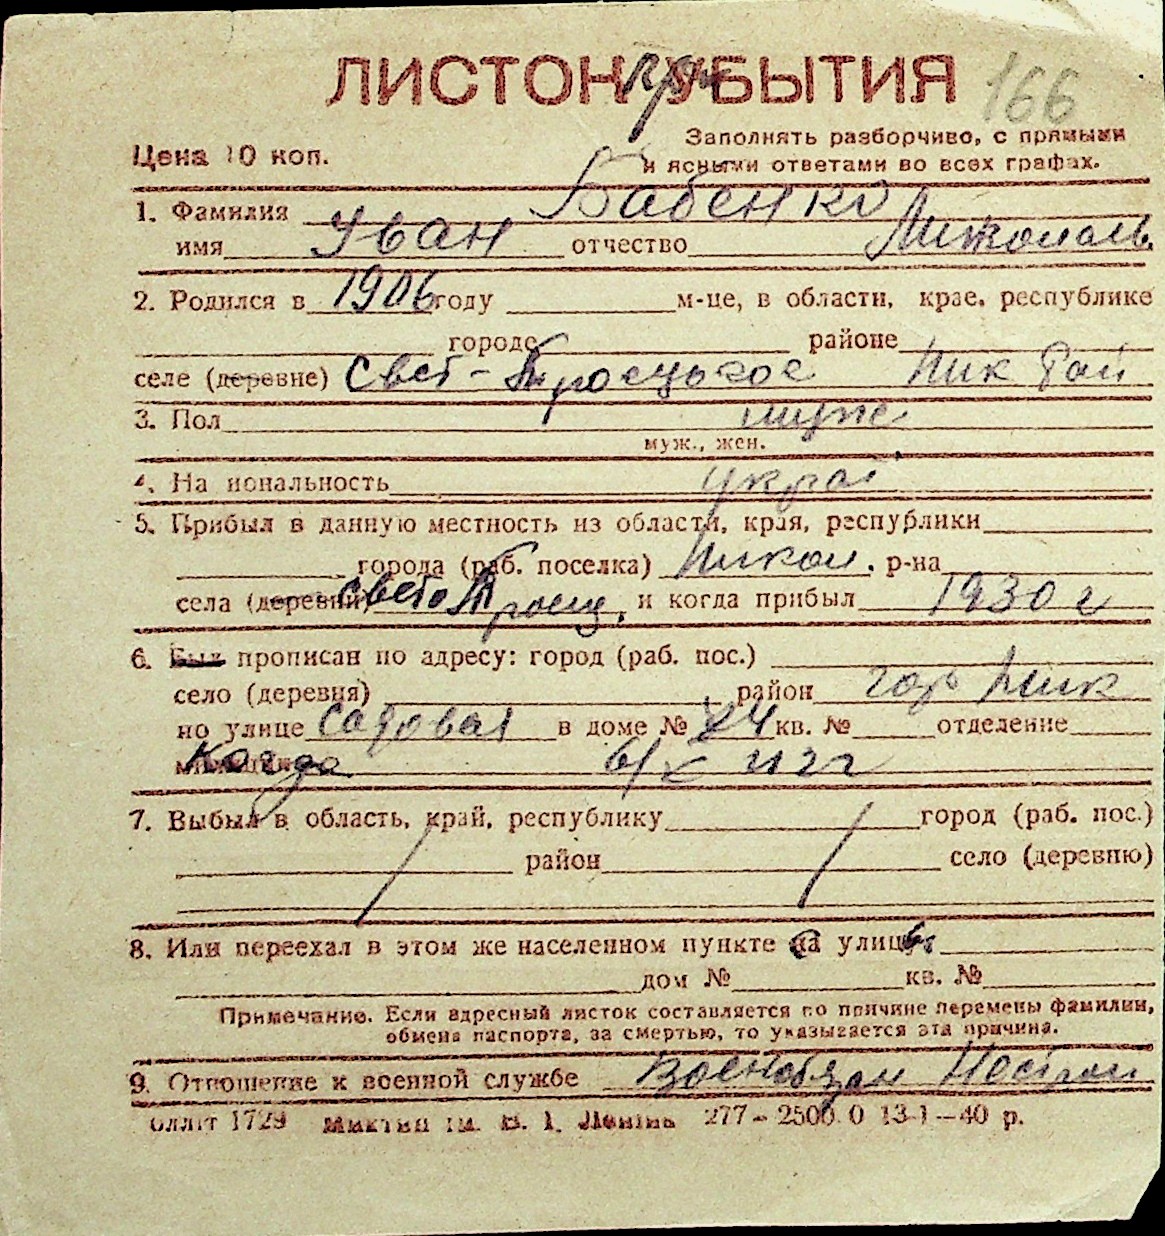 ЛИСТОК УБЫТИЯ 166
Цена 10 коп.
Заполнять разборчиво, с прямыми
и ясными ответами во всех графах.
1. Фамилия Бабенко
имя Иван отчество
2. Родился в 1906 году м-це, в области, крае, республике
городе районе
селе (деревне) Свет-Троецькое Ник рай
3. Пол муж
муж., жен.
4. Национальность укра
5. Прибыл в данную местность из области, края, республики
города (раб. поселка) Никол. р-на
села (деревни) Свето Троец. и когда прибыл 1930 г
6. Был прописан по адресу: город (раб. пос.)
село (деревня) район гор Ник
по улице Садовая в доме № 24 кв. № отделение
Когда
7. Выбыл в область, край, республику город (раб. пос.)
район село (деревню)
8. Или переехал в этом же населенном пункте на улицу
дом № кв. №
Примечание. Если адресный листок составляется по причине перемены фамилии,
обмена паспорта, за смертью, то указывается эта причина.
9. Отношение к военной службе Военобязан
1729 им. В. І. Леніна 277—2500 0 13-1—40 р.